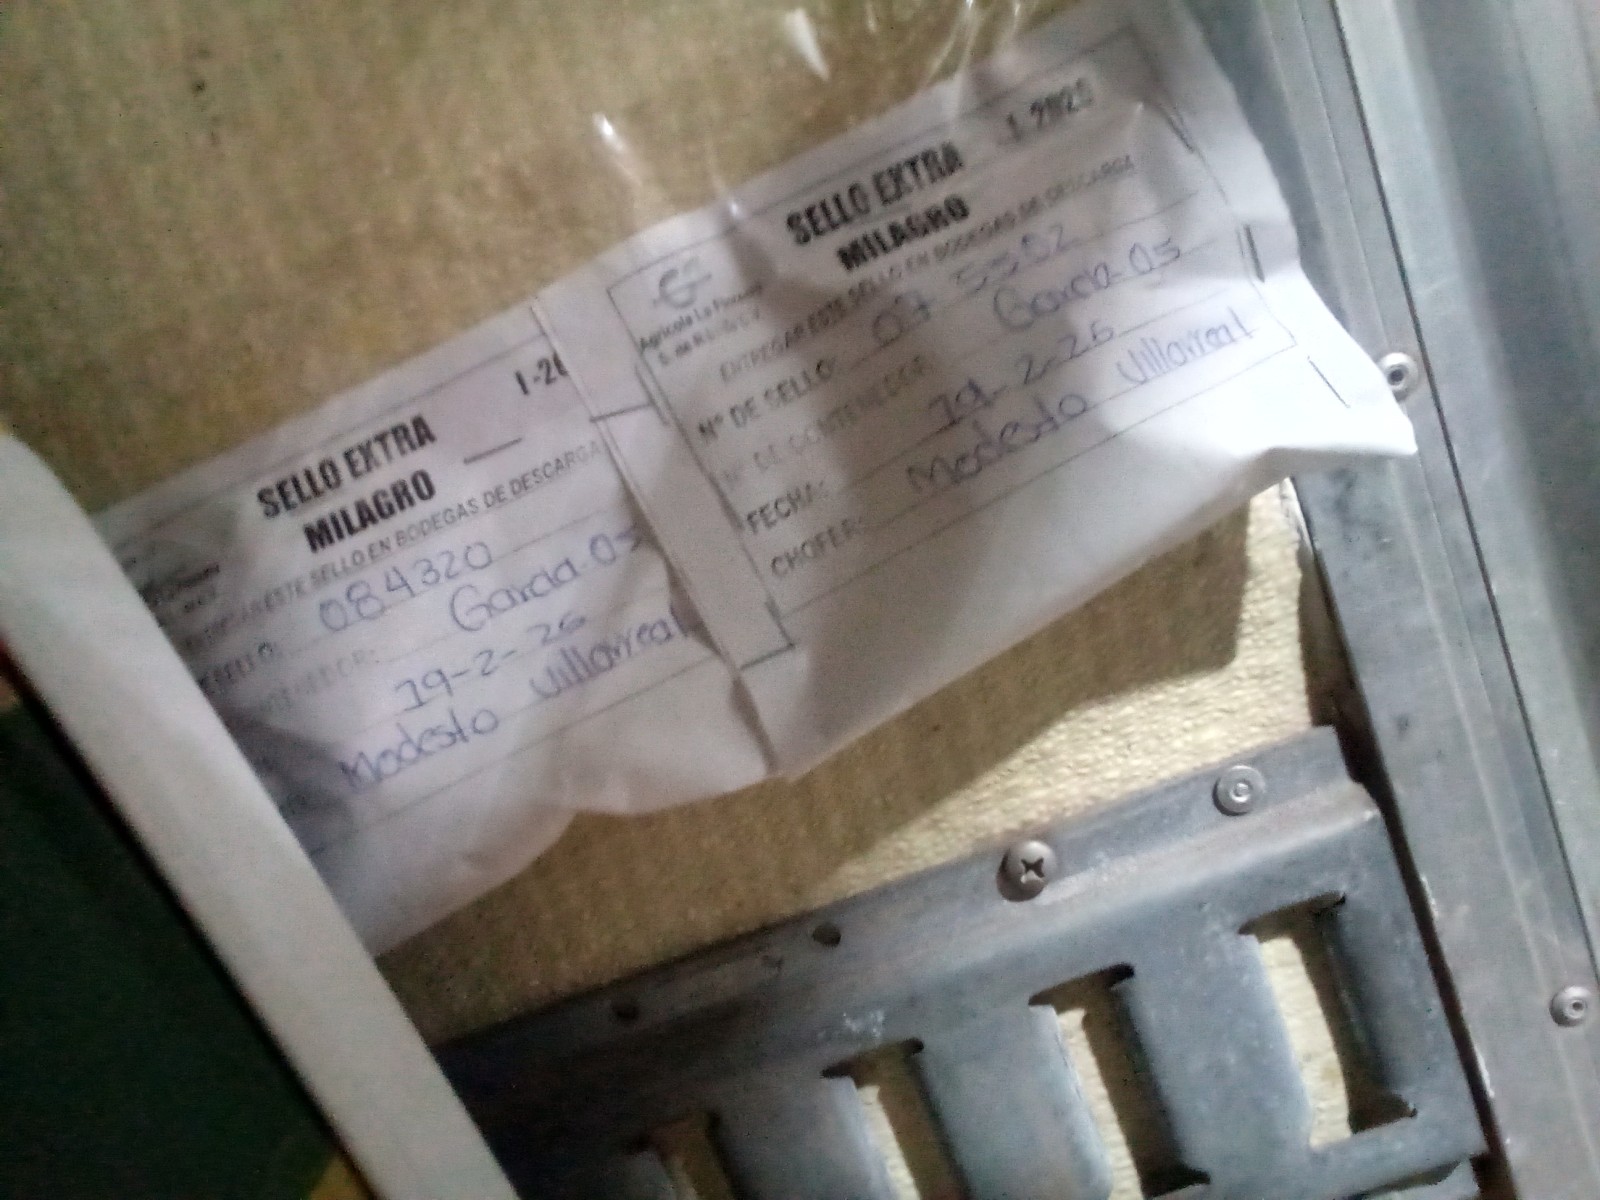 I-20
SELLO EXTRA
MILAGRO
ESTE SELLO EN BODEGAS DE DESCARGA
SELLO: 084320
Garcia-05
19-2-26
Modesto Villarreal
I 2025
SELLO EXTRA
MILAGRO
Agricola La
S. de R.L.
ENTREGAR ESTE SELLO EN BODEGAS DE DESCARGA
N° DE SELLO: 07 5502
N° DE CONTENEDOR: Garcia-05
FECHA: 19-2-26
CHOFER: Modesto Villarreal